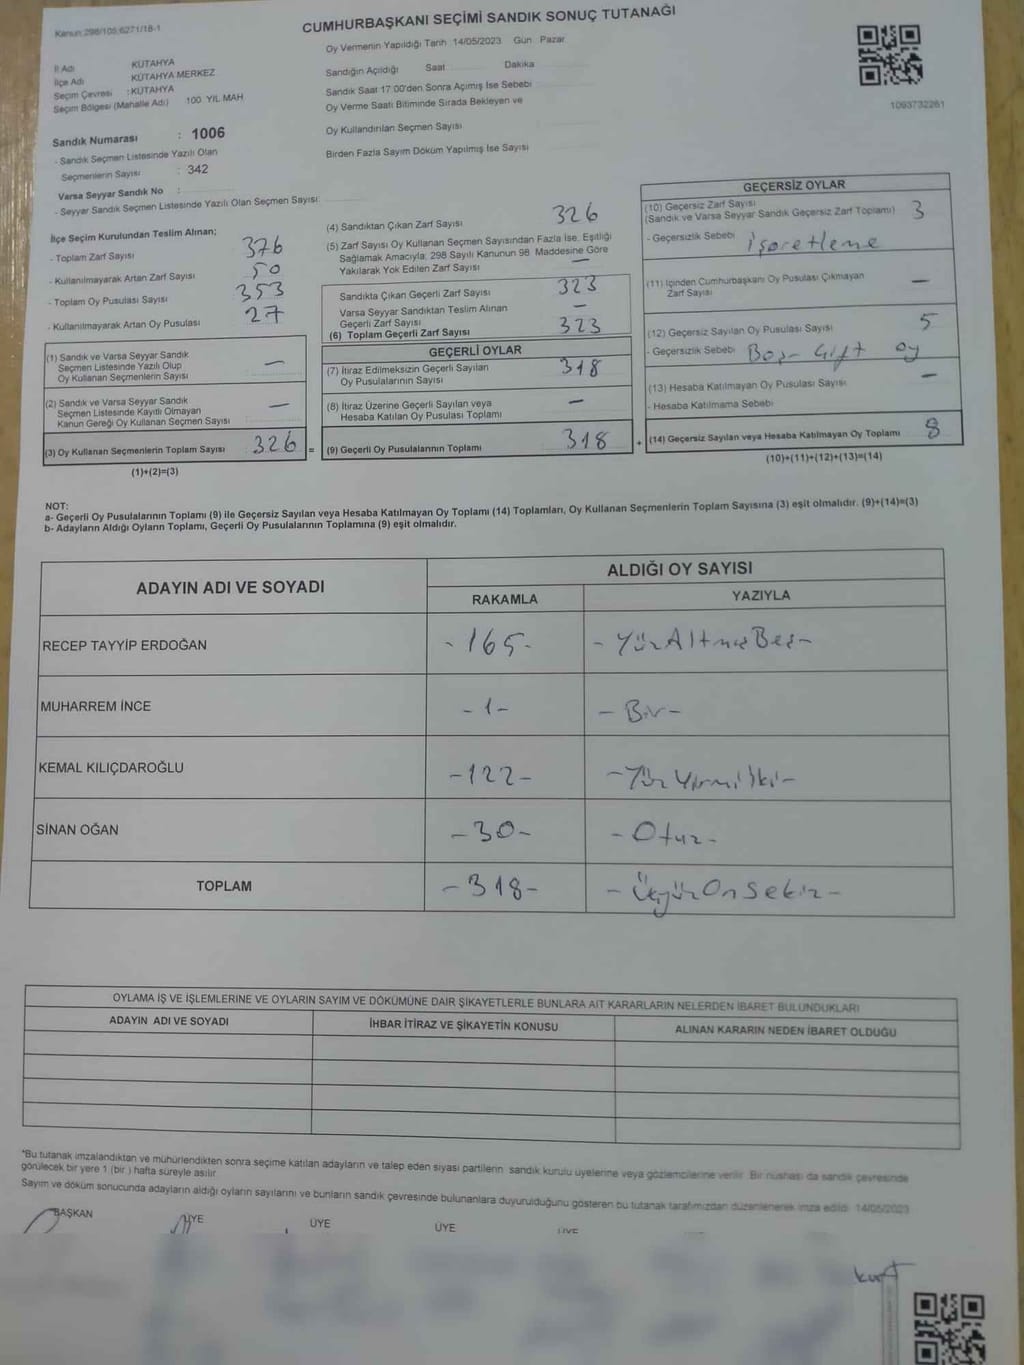 Kanun:298/105;6271/18-1
CUMHURBAŞKANI SEÇİMİ SANDIK SONUÇ TUTANAĞI
Oy Vermenin Yapıldığı Tarih 14/05/2023 Gün Pazar
İl Adı KÜTAHYA
İlçe Adı KÜTAHYA MERKEZ
Seçim Çevresi : KÜTAHYA
Seçim Bölgesi (Mahalle Adı) 100. YIL MAH
Sandığın Açıldığı Saat Dakika
Sandık Saat 17:00'den Sonra Açımış İse Sebebi
Oy Verme Saati Bitiminde Sırada Bekleyen ve
Oy Kullandırılan Seçmen Sayısı
Birden Fazla Sayım Döküm Yapılmış İse Sayısı
1093732261
Sandık Numarası : 1006
- Sandık Seçmen Listesinde Yazılı Olan
Seçmenlerin Sayısı : 342
Varsa Seyyar Sandık No :
- Seyyar Sandık Seçmen Listesinde Yazılı Olan Seçmen Sayısı:
İlçe Seçim Kurulundan Teslim Alınan;
- Toplam Zarf Sayısı 376
- Kullanılmayarak Artan Zarf Sayısı 50
- Toplam Oy Pusulası Sayısı 353
- Kullanılmayarak Artan Oy Pusulası 27
(1) Sandık ve Varsa Seyyar Sandık
Seçmen Listesinde Yazılı Olup
Oy Kullanan Seçmenlerin Sayısı —
(2) Sandık ve Varsa Seyyar Sandık
Seçmen Listesinde Kayıtlı Olmayan
Kanun Gereği Oy Kullanan Seçmen Sayısı —
(3) Oy Kullanan Seçmenlerin Toplam Sayısı 326 =
(1)+(2)=(3)
(4) Sandıktan Çıkan Zarf Sayısı 326
(5) Zarf Sayısı Oy Kullanan Seçmen Sayısından Fazla İse, Eşitliği
Sağlamak Amacıyla; 298 Sayılı Kanunun 98. Maddesine Göre
Yakılarak Yok Edilen Zarf Sayısı —
Sandıkta Çıkan Geçerli Zarf Sayısı 323
Varsa Seyyar Sandıktan Teslim Alınan
Geçerli Zarf Sayısı —
(6) Toplam Geçerli Zarf Sayısı 323
GEÇERLİ OYLAR
(7) İtiraz Edilmeksizin Geçerli Sayılan
Oy Pusulalarının Sayısı 318
(8) İtiraz Üzerine Geçerli Sayılan veya
Hesaba Katılan Oy Pusulası Toplamı —
(9) Geçerli Oy Pusulalarının Toplamı 318 +
GEÇERSİZ OYLAR
(10) Geçersiz Zarf Sayısı
(Sandık ve Varsa Seyyar Sandık Geçersiz Zarf Toplamı) 3
- Geçersizlik Sebebi işaretleme
(11) İçinden Cumhurbaşkanı Oy Pusulası Çıkmayan
Zarf Sayısı —
(12) Geçersiz Sayılan Oy Pusulası Sayısı 5
- Geçersizlik Sebebi Boş - Çift oy
(13) Hesaba Katılmayan Oy Pusulası Sayısı —
- Hesaba Katılmama Sebebi
(14) Geçersiz Sayılan veya Hesaba Katılmayan Oy Toplamı 8
(10)+(11)+(12)+(13)=(14)
NOT:
a- Geçerli Oy Pusulalarının Toplamı (9) ile Geçersiz Sayılan veya Hesaba Katılmayan Oy Toplamı (14) Toplamları, Oy Kullanan Seçmenlerin Toplam Sayısına (3) eşit olmalıdır. (9)+(14)=(3)
b- Adayların Aldığı Oyların Toplamı, Geçerli Oy Pusulalarının Toplamına (9) eşit olmalıdır.
ADAYIN ADI VE SOYADI ALDIĞI OY SAYISI
RAKAMLA YAZIYLA
RECEP TAYYİP ERDOĞAN -165- -YüzAltmışBeş-
MUHARREM İNCE -1- -Bir-
KEMAL KILIÇDAROĞLU -122- -Yüz Yirmi İki-
SİNAN OĞAN -30- -Otuz-
TOPLAM -318- -ÜçyüzOnSekiz-
OYLAMA İŞ VE İŞLEMLERİNE VE OYLARIN SAYIM VE DÖKÜMÜNE DAİR ŞİKAYETLERLE BUNLARA AİT KARARLARIN NELERDEN İBARET BULUNDUKLARI
ADAYIN ADI VE SOYADI İHBAR İTİRAZ VE ŞİKAYETİN KONUSU ALINAN KARARIN NEDEN İBARET OLDUĞU
*Bu tutanak imzalandıktan ve mühürlendikten sonra seçime katılan adayların ve talep eden siyasi partilerin sandık kurulu üyelerine veya gözlemcilerine verilir. Bir nüshası da sandık çevresinde
görülecek bir yere 1 (bir ) hafta süreyle asılır.
Sayım ve döküm sonucunda adayların aldığı oyların sayılarını ve bunların sandık çevresinde bulunanlara duyurulduğunu gösteren bu tutanak tarafımızdan düzenlenerek imza edildi. 14/05/2023
BAŞKAN ÜYE ÜYE ÜYE ÜYE
kurt